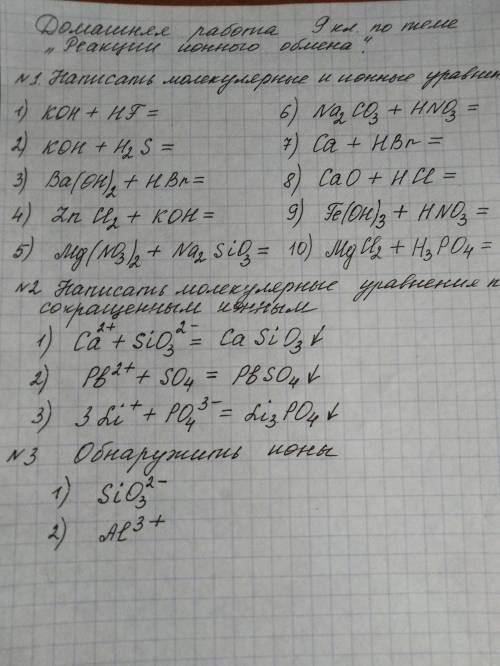 Домашняя работа 9 кл. по теме
„Реакции ионного обмена".
№1. Написать молекулярные и ионные уравнен
1) KOH + HF =
2) KOH + H₂S =
3) Ba(OH)₂ + HBr =
4) ZnCl₂ + KOH =
5) Mg(NO₃)₂ + Na₂SiO₃ =
6) Na₂CO₃ + HNO₃ =
7) Ca + HBr =
8) CaO + HCl =
9) Fe(OH)₃ + HNO₃ =
10) MgCl₂ + H₃PO₄ =
№2 Написать молекулярные уравнения п
сокращенным ионным
1) Ca²⁺ + SiO₃²⁻ = CaSiO₃↓
2) Pb²⁺ + SO₄ = PbSO₄↓
3) 3Li⁺ + PO₄³⁻ = Li₃PO₄↓
№3 Обнаружить ионы
1) SiO₃²⁻
2) Al³⁺